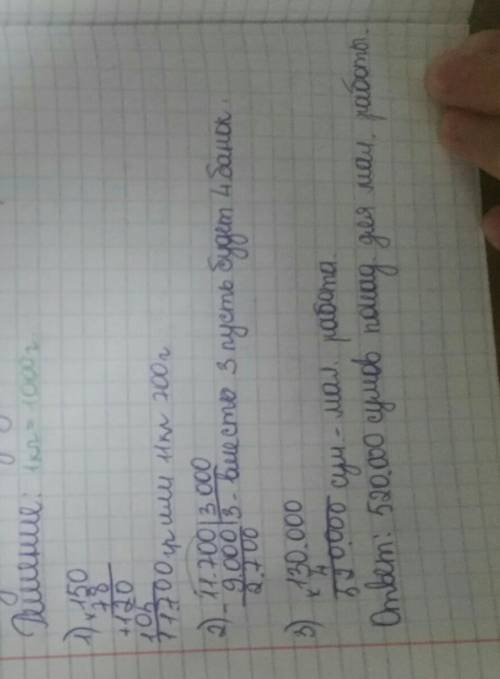 Решение: 1кг = 1000г
1) ×150
78
+1200
105
11700 гр или 11кг 700г
2) - 11.700 | 3.000
9.000 | 3 - вместо 3 пусть будет 4 банок.
2.700
3) × 130.000
4
520.000 сум - мал. работа.
Ответ: 520.000 сумов понад. для мал. работы.